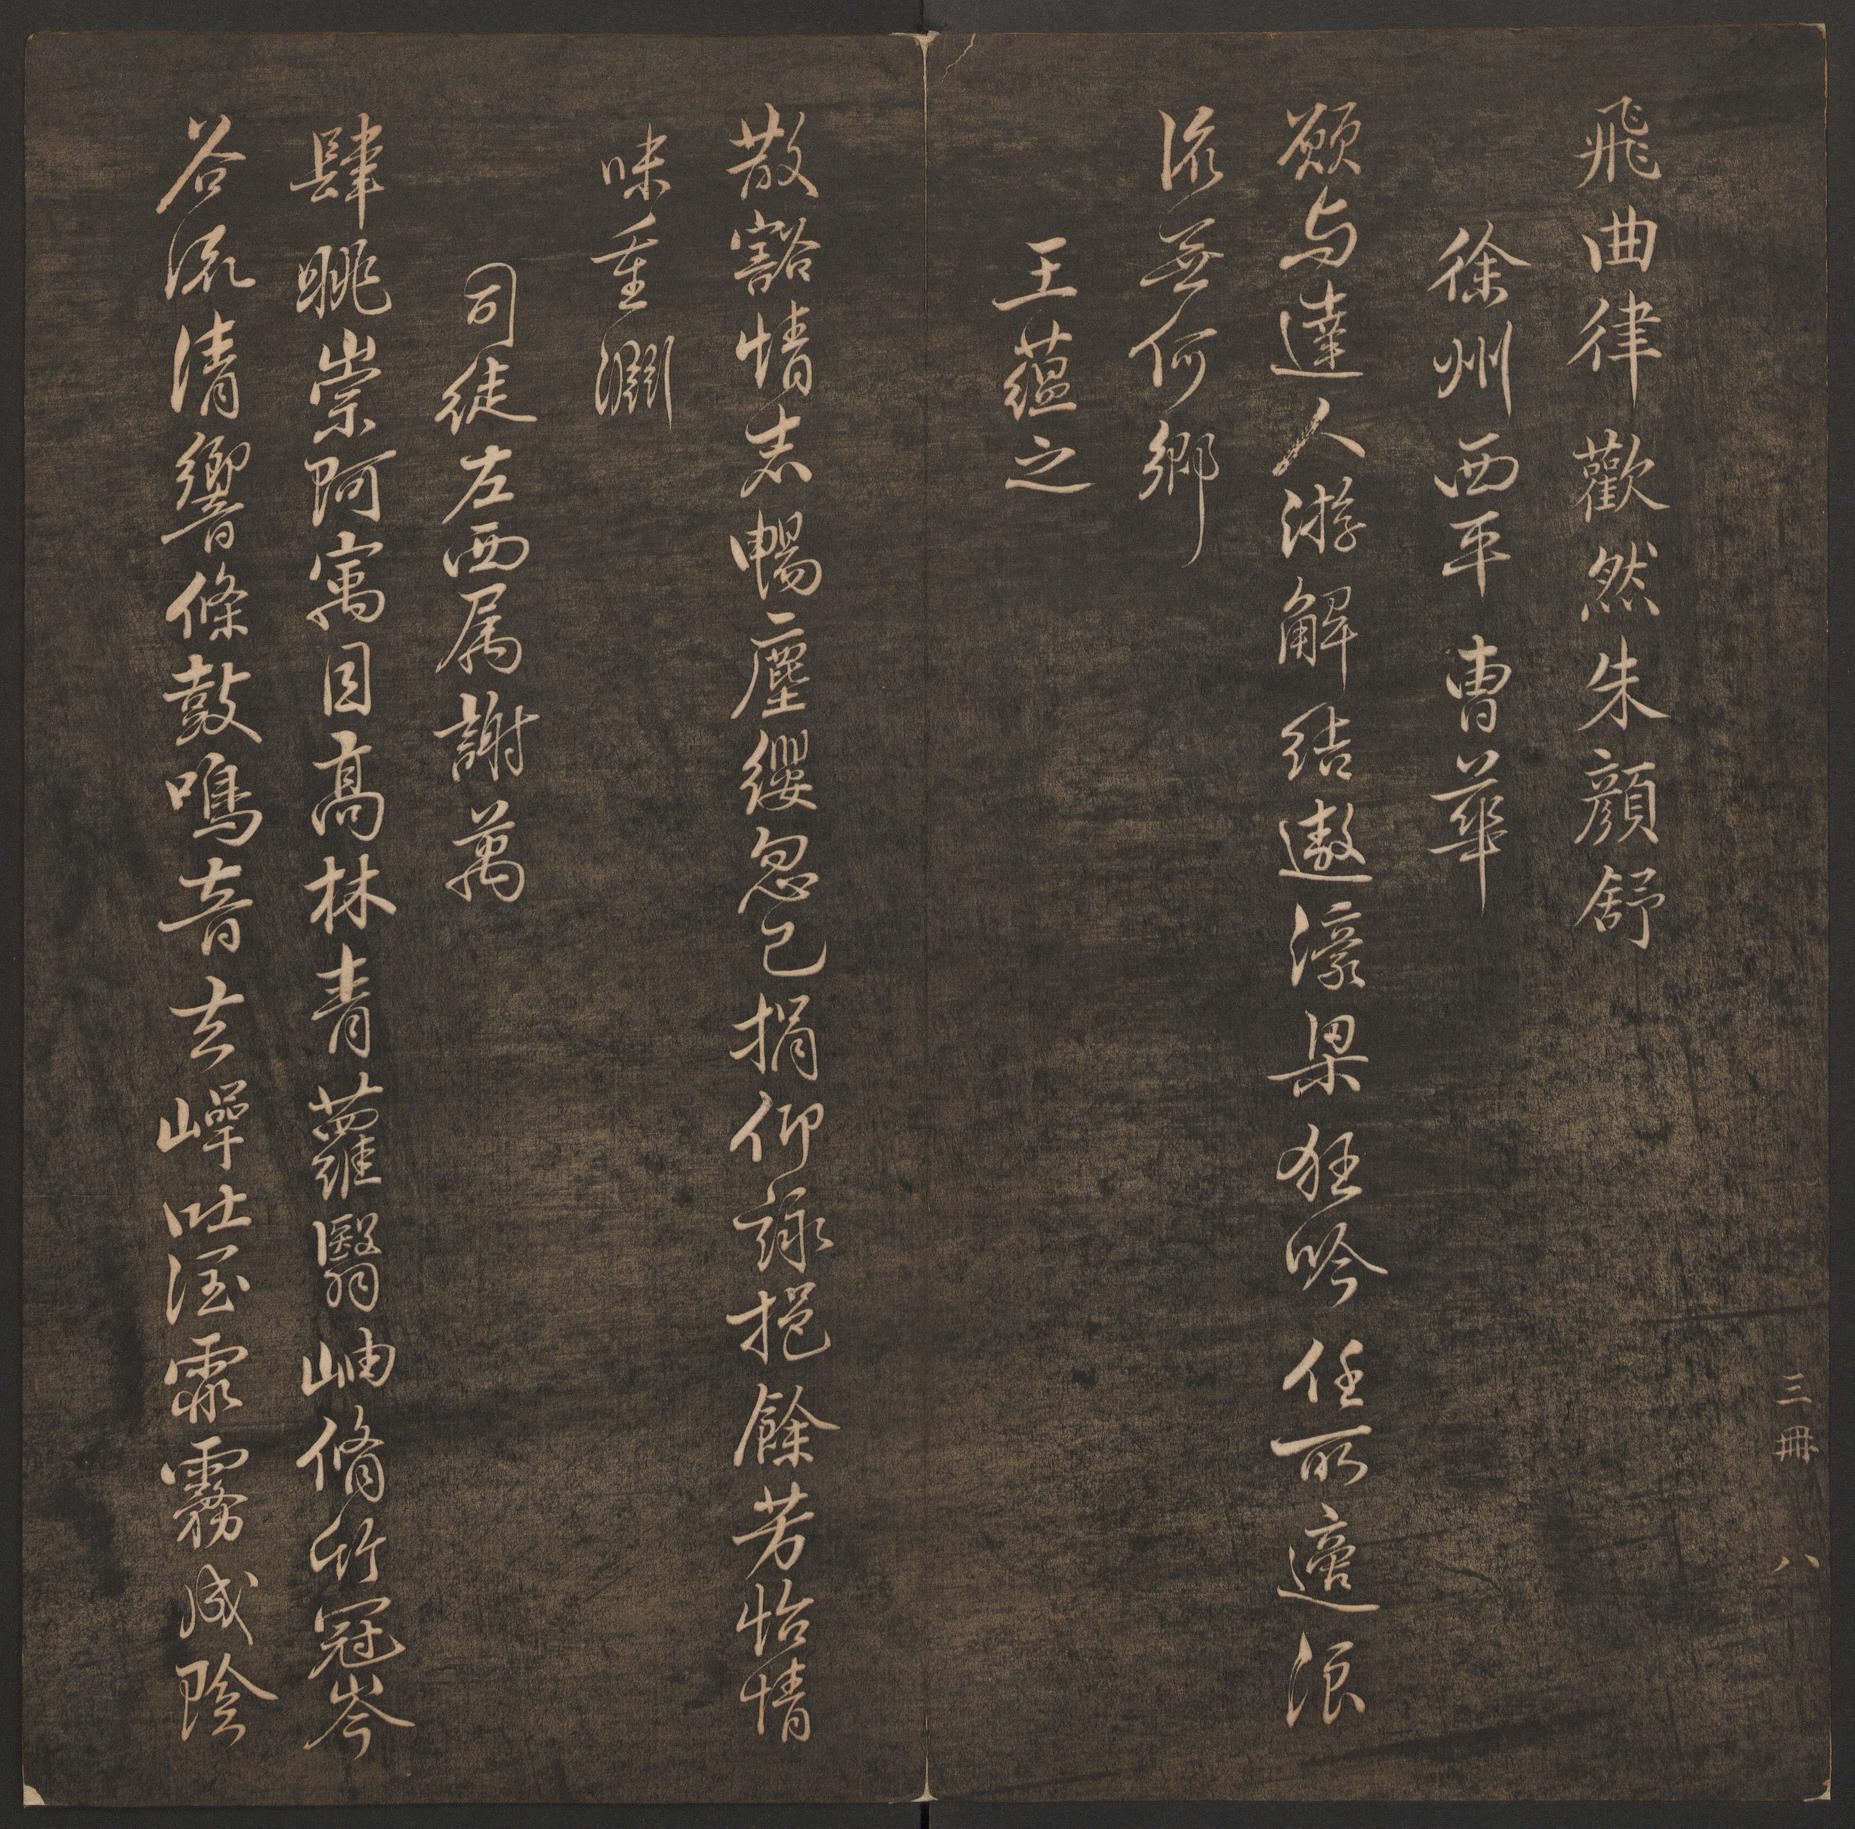 飛曲律歡然朱顔舒
徐州西平曹華
願与達人游解結遨濠梁狂吟任所適浪
流無何鄉
王蘊之
散豁情志暢塵纓忽已捐仰詠挹餘芳怡情
味重淵
司徒左西属謝萬
肆眺崇阿寓目髙林青蘿翳岫脩竹冠岑
谷流清響條鼓鳴音玄崿吐潤霏霧成陰
三冊 八